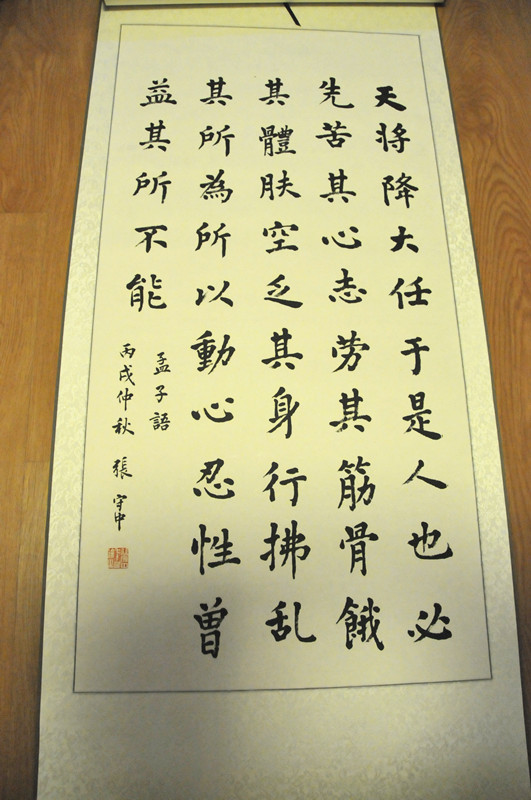 天将降大任于是人也必
先苦其心志劳其筋骨餓
其體肤空乏其身行拂乱
其所為所以動心忍性曾
益其所不能
孟子語
丙戌仲秋 張守中